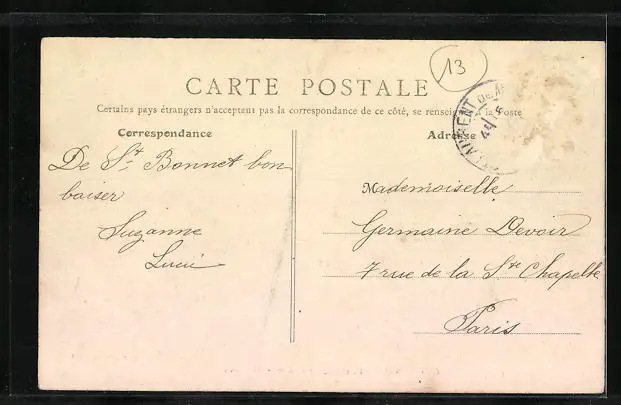 13
CARTE POSTALE
Certains pays étrangers n'acceptent pas la correspondance de ce côté, se renseigner à la Poste
Correspondance
Adresse
De St Bonnet bon
baiser
Suzanne
Mademoiselle
Germaine Devoir
7 rue de la Ste Chapelle
Paris